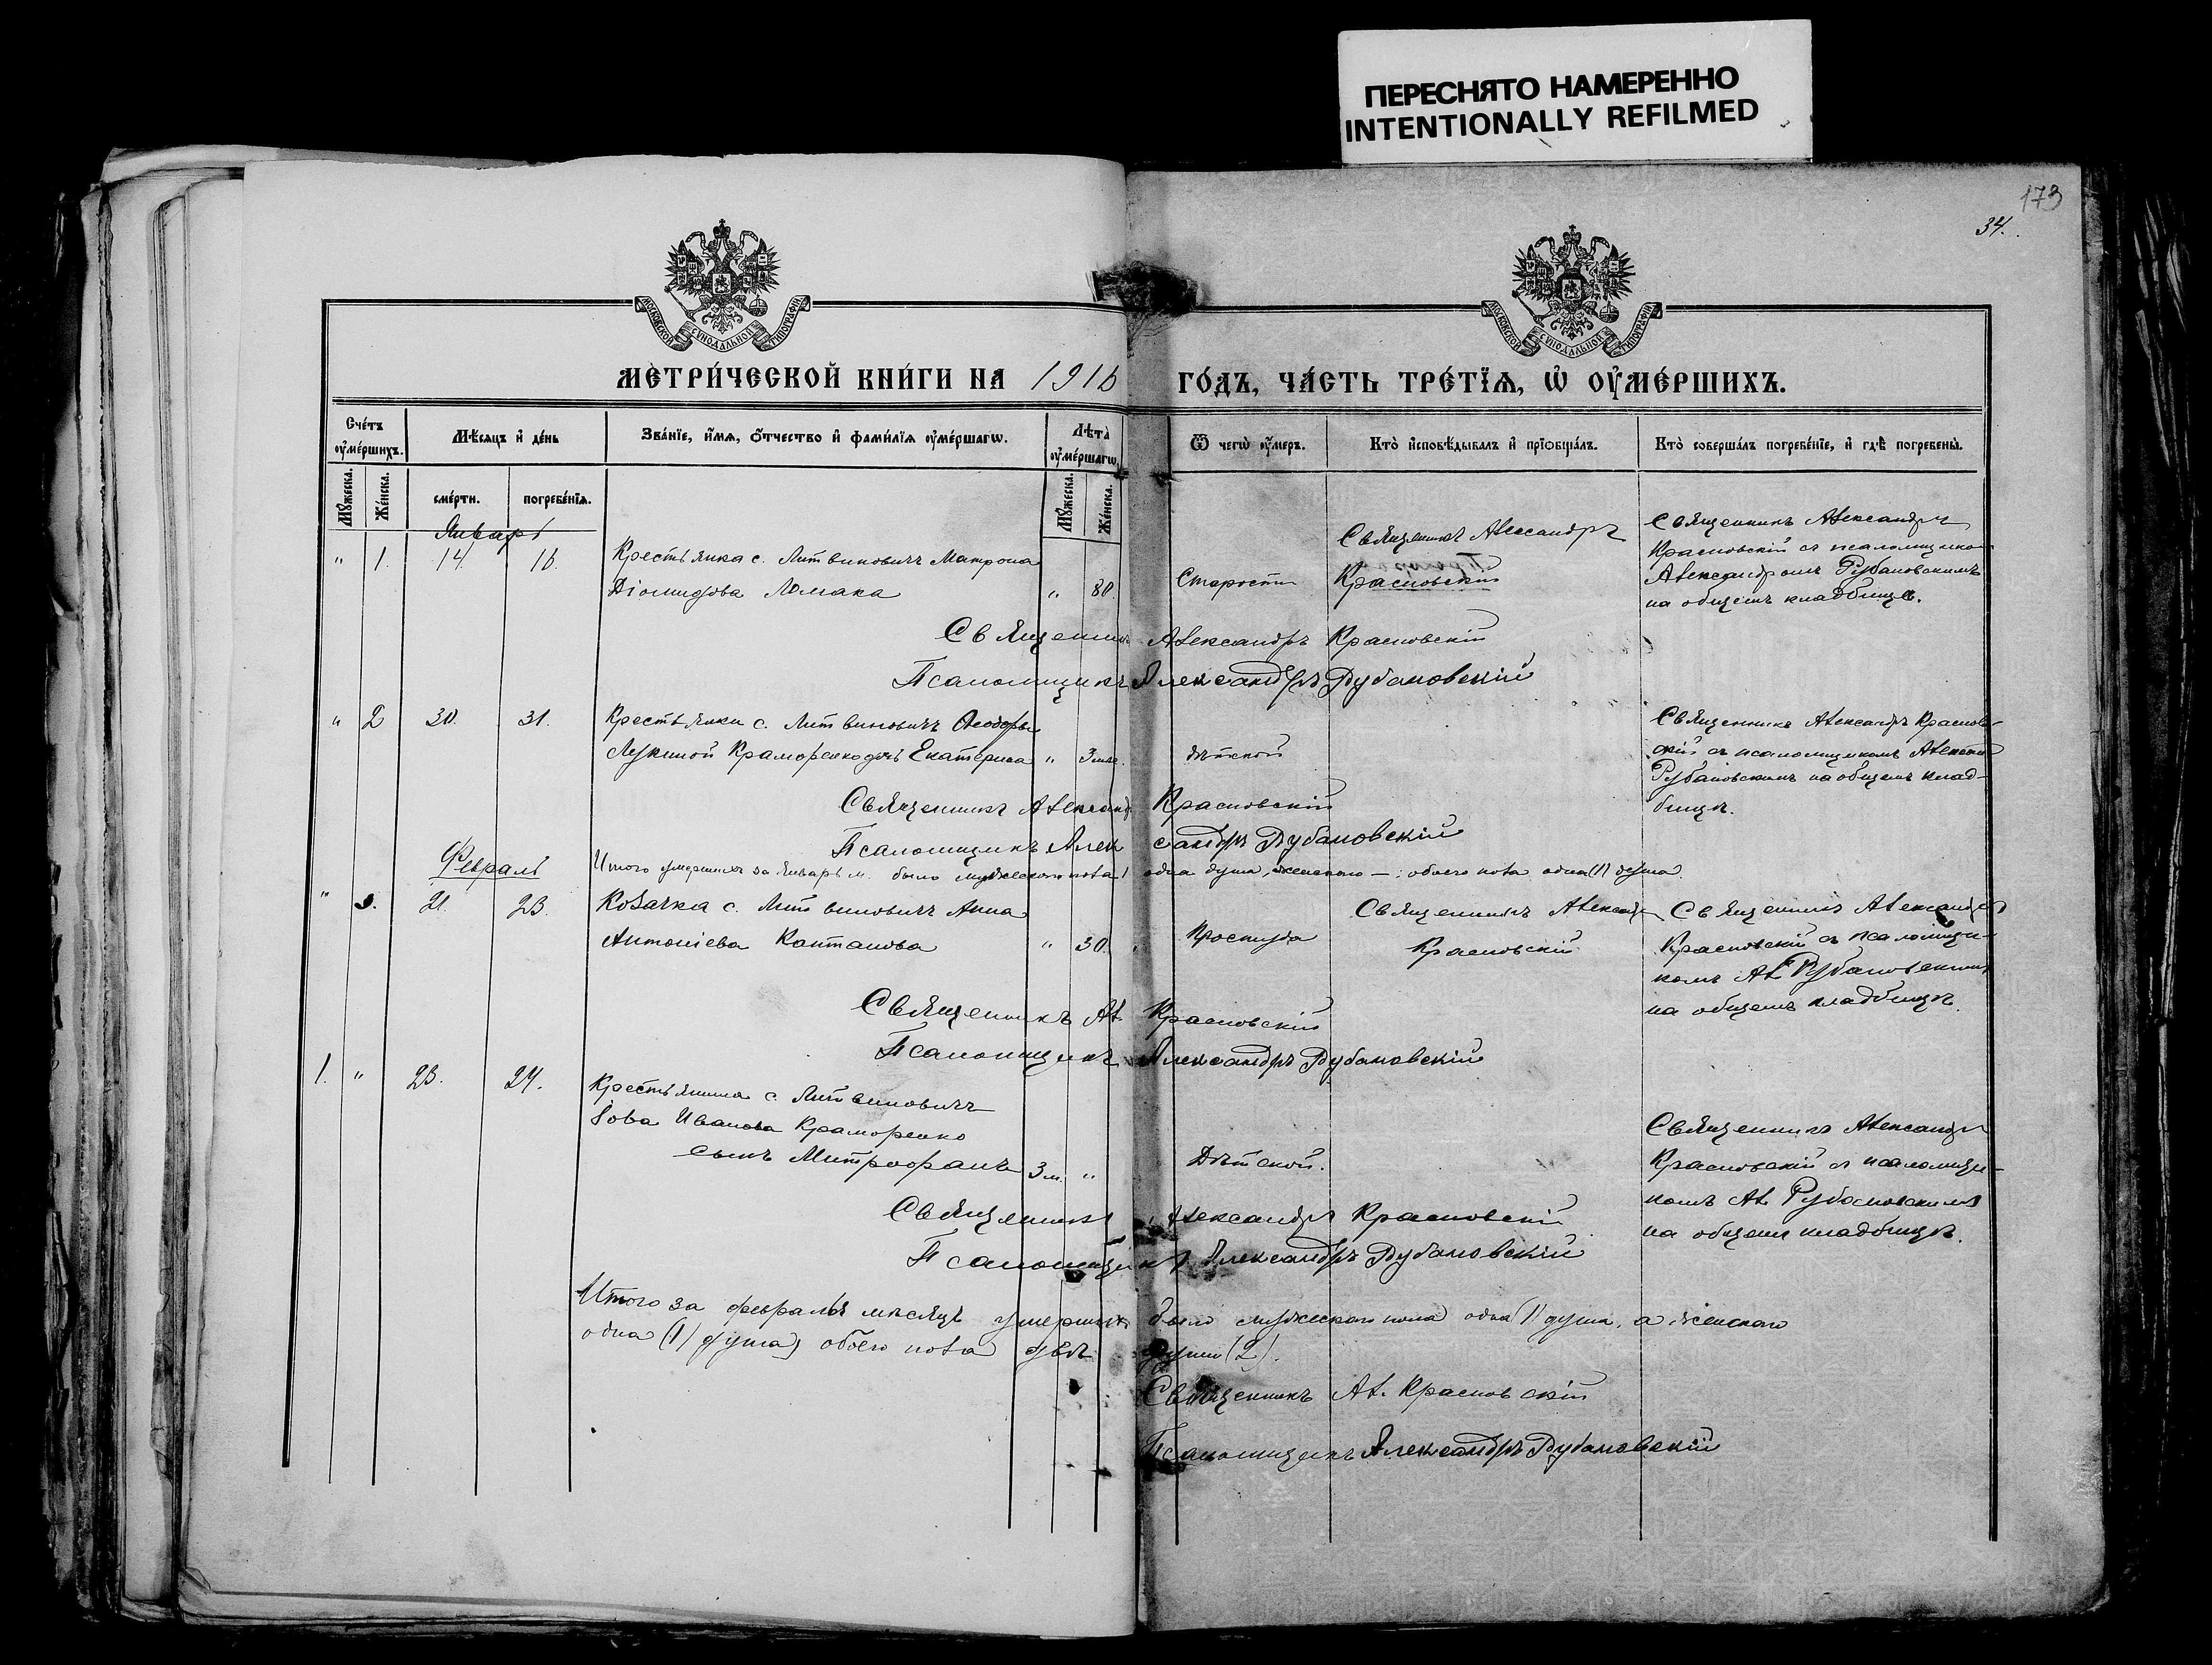 ПЕРЕСНЯТО НАМЕРЕННО
INTENTIONALLY REFILMED
173
34.
МОСКОВСКОЙ СѴНОДАЛЬНОЙ ТИПОГРАФІИ
МОСКОВСКОЙ СѴНОДАЛЬНОЙ ТИПОГРАФІИ
МЕТРИ́ЧЕСКОЙ КНИ́ГИ НА 1916 ГО́ДЪ, ЧА́СТЬ ТРЕ́ТЇѦ, Ѡ҆ ОУ҆МЕ́РШИХЪ.
Сче́тъ оу҆ме́ршихъ.
Мѣ́сѧцъ и҆ де́нь
Зва́нїе, и҆́мѧ, ѻ҆́тчество и҆ фами́лїѧ оу҆ме́ршагѡ.
Лѣ́та оу҆ме́ршагѡ.
Ѿ чегѡ̀ оу҆́меръ.
Кто̀ и҆сповѣ́дывалъ и҆ прїѡбща́лъ.
Кто̀ соверша́лъ погребе́нїе, и҆ гдѣ̀ погребены̀.
Мꙋ́жеска. Же́нска. сме́рти. погребе́нїѧ. Мꙋ́жеска. Же́нска.
Январь
" 1. 14. 16. Крестьянка с. Литвиновичъ Матрона
Діомидова " 80. Старости
Священникъ Александръ
Красновскій
Священникъ Александръ
Красновскій съ псаломщикомъ
Александромъ Рубановскимъ
на общемъ кладбищѣ.
Священникъ Александръ Красновскій
Псаломщикъ Александръ Рубановскій
" 2 30. 31. Крестьянки с. Литвиновичъ Ѳеодоры
Лукиной Краморенко дочь Екатерина " 3 мѣс. дѣтской
Священникъ Александръ Краснов-
скій съ псаломщикомъ Александ.
Рубановскимъ на общемъ клад-
бищѣ.
Священникъ Александ. Красновскій
Псаломщикъ Александръ Рубановскій
Итого умершихъ за Январь м. было мужескаго пола 1 одна душа, женскаго — ; обоего пола одна (1) душа.
Февраль
" 3. 21. 23. Козачка с. Литвиновичъ Анна
Антоніева " 30. Простуда
Священникъ Александръ
Красновскій
Священникъ Александръ
Красновскій съ псаломщи-
комъ Ал. Рубановскимъ
на общемъ кладбищѣ.
Священникъ Ал. Красновскій
Псаломщикъ Александръ Рубановскій
1. " 23. 24. Крестьянина с. Литвиновичъ
Іова Иванова Краморенко
сынъ Митрофанъ 3 м. " Дѣтской.
Священникъ Александръ
Красновскій съ псаломщи-
комъ Ал. Рубановскимъ
на общемъ кладбищѣ.
Священникъ Александръ Красновскій
Псаломщикъ Александръ Рубановскій
Итого за февраль мѣсяцъ умершихъ было мужескаго пола одна (1) душа, а женскаго
одна (1) душа, обоего пола двѣ души (2).
Священникъ Ал. Красновскій
Псаломщикъ Александръ Рубановскій